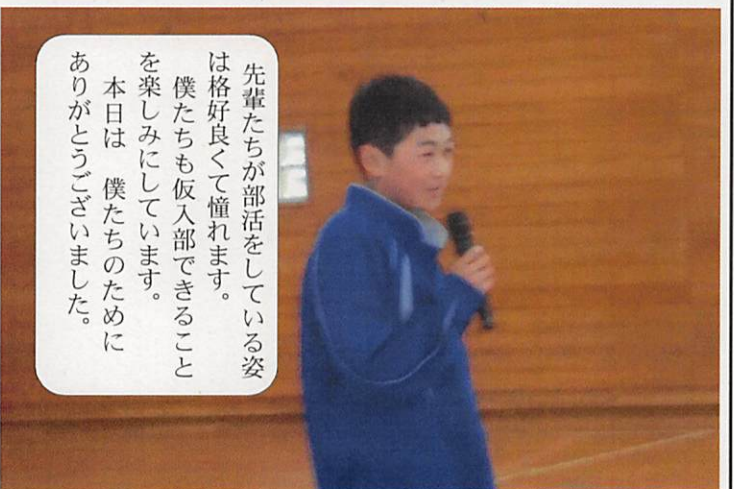 先輩たちが部活をしている姿
は格好良くて憧れます。
僕たちも仮入部できること
を楽しみにしています。
本日は　僕たちのために
ありがとうございました。